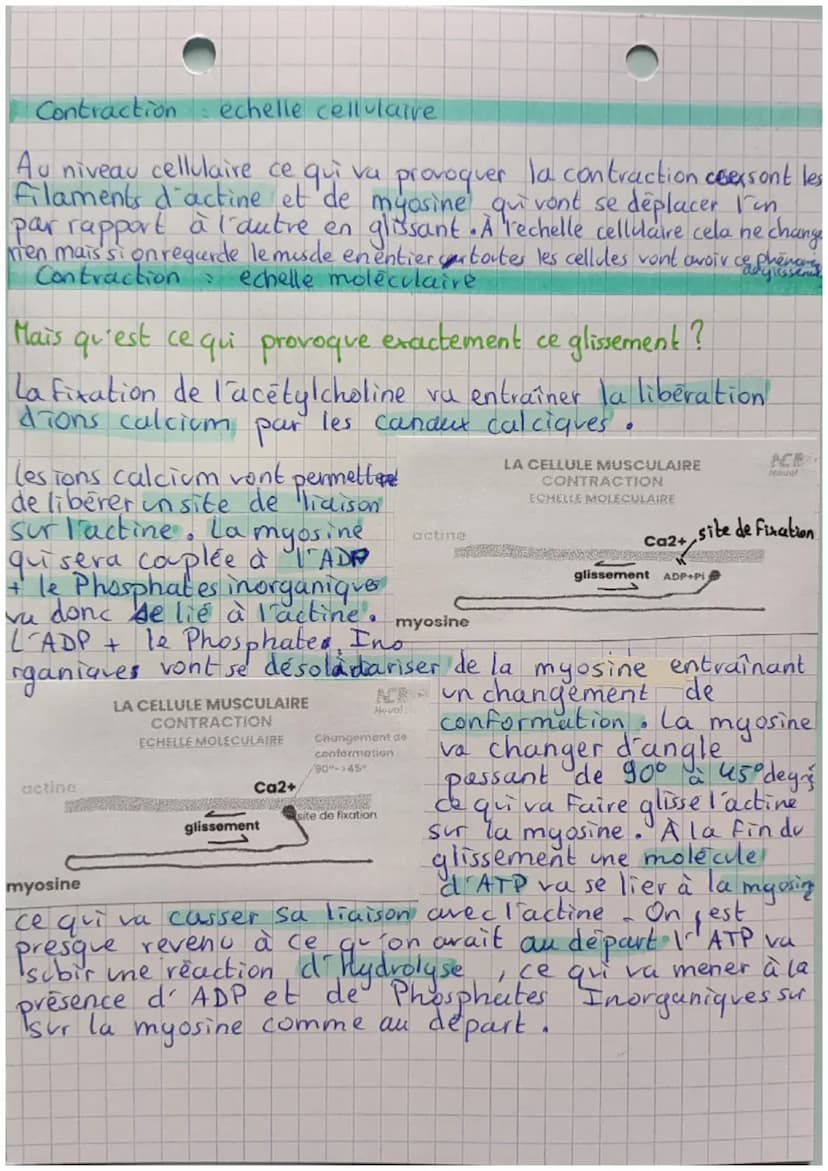 Contraction : echelle cellulaire
Au niveau cellulaire ce qui va provoquer la contraction sont les
filaments d'actine et de myosine qui vont se déplacer l'un
par rapport à l'autre en glissant. À l'echelle cellulaire cela ne change
rien mais si on regarde le muscle en entier toutes les cellules vont avoir ce phénomè
de glissement
Contraction : echelle moléculaire
Mais qu'est ce qui provoque exactement ce glissement ?
La fixation de l'acétylcholine va entraîner la libération
d'ions calcium par les canaux calciques.
Les ions calcium vont permettre
de libérer un site de liaison
sur l'actine. La myosine
qui sera couplée à l'ADP
+ le Phosphates inorganiques
va donc se lié à l'actine.
L'ADP + le Phosphates Ino
rganiques vont se désolidariser de la myosine entraînant
LA CELLULE MUSCULAIRE
CONTRACTION
ECHELLE MOLECULAIRE
actine
Ca2+
site de fixation
glissement
ADP+Pi
myosine
LA CELLULE MUSCULAIRE
CONTRACTION
ECHELLE MOLECULAIRE
Changement de
conformation
90°->45°
actine
Ca2+
site de fixation
glissement
myosine
un changement de
conformation. La myosine
va changer d'angle
passant de 90° à 45° degré
ce qui va faire glisse l'actine
sur la myosine. À la fin du
glissement une molécule
d'ATP va se lier à la myosine
ce qui va casser sa liaison avec l'actine. On est
presque revenu à ce qu'on avait au départ l'ATP va
subir une réaction d'hydrolyse, ce qui va mener à la
présence d'ADP et de Phosphates Inorganiques sur
sur la myosine comme au départ.